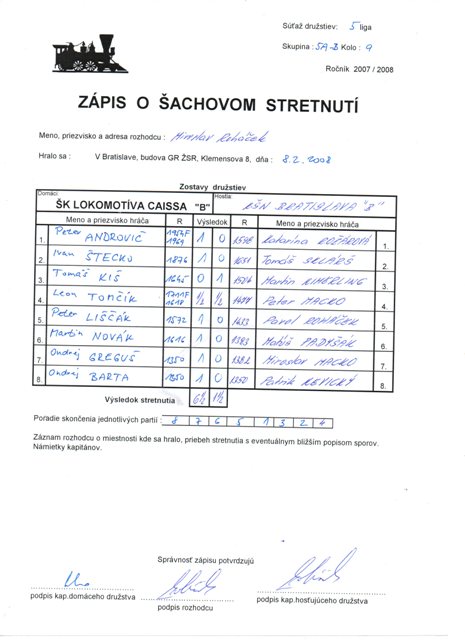 Súťaž družstiev: 5 liga
Skupina : 5A-B Kolo : 9
Ročník 2007 / 2008
ZÁPIS O ŠACHOVOM STRETNUTÍ
Meno, priezvisko a adresa rozhodcu : Miroslav Roháček
Hralo sa : V Bratislave, budova GR ŽSR, Klemensova 8, dňa : 8.2.2008
Zostavy družstiev
Domáci: Hostia:
ŠK LOKOMOTÍVA CAISSA "B" BRATISLAVA "B"
Meno a priezvisko hráča R Výsledok R Meno a priezvisko hráča
1. Peter ANDROVIČ 1969 1 0 Katarína 1.
2. Ivan ŠTECKO 1876 1 0 Tomáš 2.
3. Tomáš KIŠ 1645 0 1 Martin KIMERLING 3.
4. Leon TONČÍK 1618 ½ ½ Peter MACKO 4.
5. Peter LIŠČÁK 1572 1 0 1413 Pavol ROHÁČEK 5.
6. Martin NOVÁK 1616 1 0 1383 Matúš PADYŠÁK 6.
7. Ondrej GREGUŠ 1350 1 0 1382 Miroslav MACKO 7.
8. Ondrej BARTA 1350 1 0 1350 Patrik KEVICKÝ 8.
Výsledok stretnutia 6½ 1½
Poradie skončenia jednotlivých partií : 8 7 6 5 1 3 2 4
Záznam rozhodcu o miestnosti kde sa hralo, priebeh stretnutia s eventuálnym bližším popisom sporov.
Námietky kapitánov.
Správnosť zápisu potvrdzujú
podpis kap.domáceho družstva podpis rozhodcu podpis kap.hosťujúceho družstva